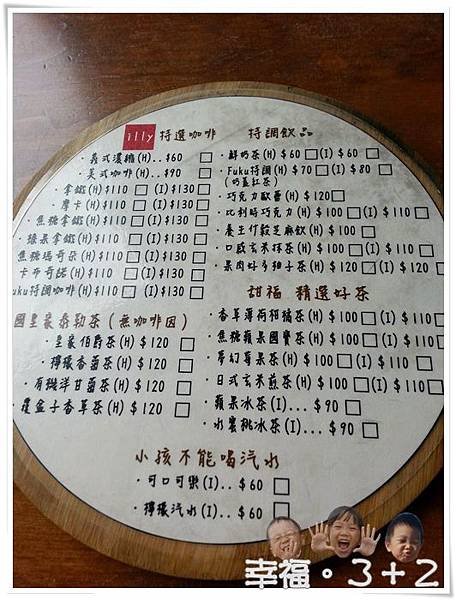 illy 特選咖啡
·義式濃縮(H)..$60 □
·美式咖啡(H)..$90 □
·拿鐵(H)$110 □ (I)$130 □
·摩卡(H)$110 □ (I)$130 □
·焦糖拿鐵(H)$110 □ (I)$130 □
·榛果拿鐵(H)$110 □ (I)$130 □
·焦糖瑪奇朵(H)$110 □ (I)$130 □
·卡布奇諾(H)$110 □ (I)$130 □
uku特調咖啡(H)$110 □ (I)$130 □
特調飲品
·鮮奶茶(H)$60 □ (I)$60 □
·Fuku特調(H)$70 □ (I)$80 □
(奶蓋紅茶)
·巧克力歐蕾(H)$120 □
·比利時巧克力(H)$100 □ (I)$110 □
·養生竹穀芝麻飲(H)$100 □
·口感玄米抹茶(H)$100 □ (I)$110 □
·果肉好多柚子茶(H)$120 □ (I)$120 □
國皇家泰勒茶(無咖啡因)
·皇家伯爵茶(H)$120 □
·檸檬香茶(H)$120 □
·有機洋甘菊茶(H)$120 □
·覆盆子香草茶(H)$120 □
甜福 精選好茶
·香草薄荷柑橘茶(H)$100 □ (I)$110 □
·焦糖蘋果國寶茶(H)$100 □ (I)$110 □
·夢幻莓果茶(H)$100 □ (I)$110 □
·日式玄米煎茶(H)$100 □ (I)$110 □
·蘋果冰茶(I)...$90 □
·水蜜桃冰茶(I)...$90 □
小孩不能喝汽水
·可口可樂(I)..$60 □
·檸檬汽水(I)..$60 □
幸福。3+2